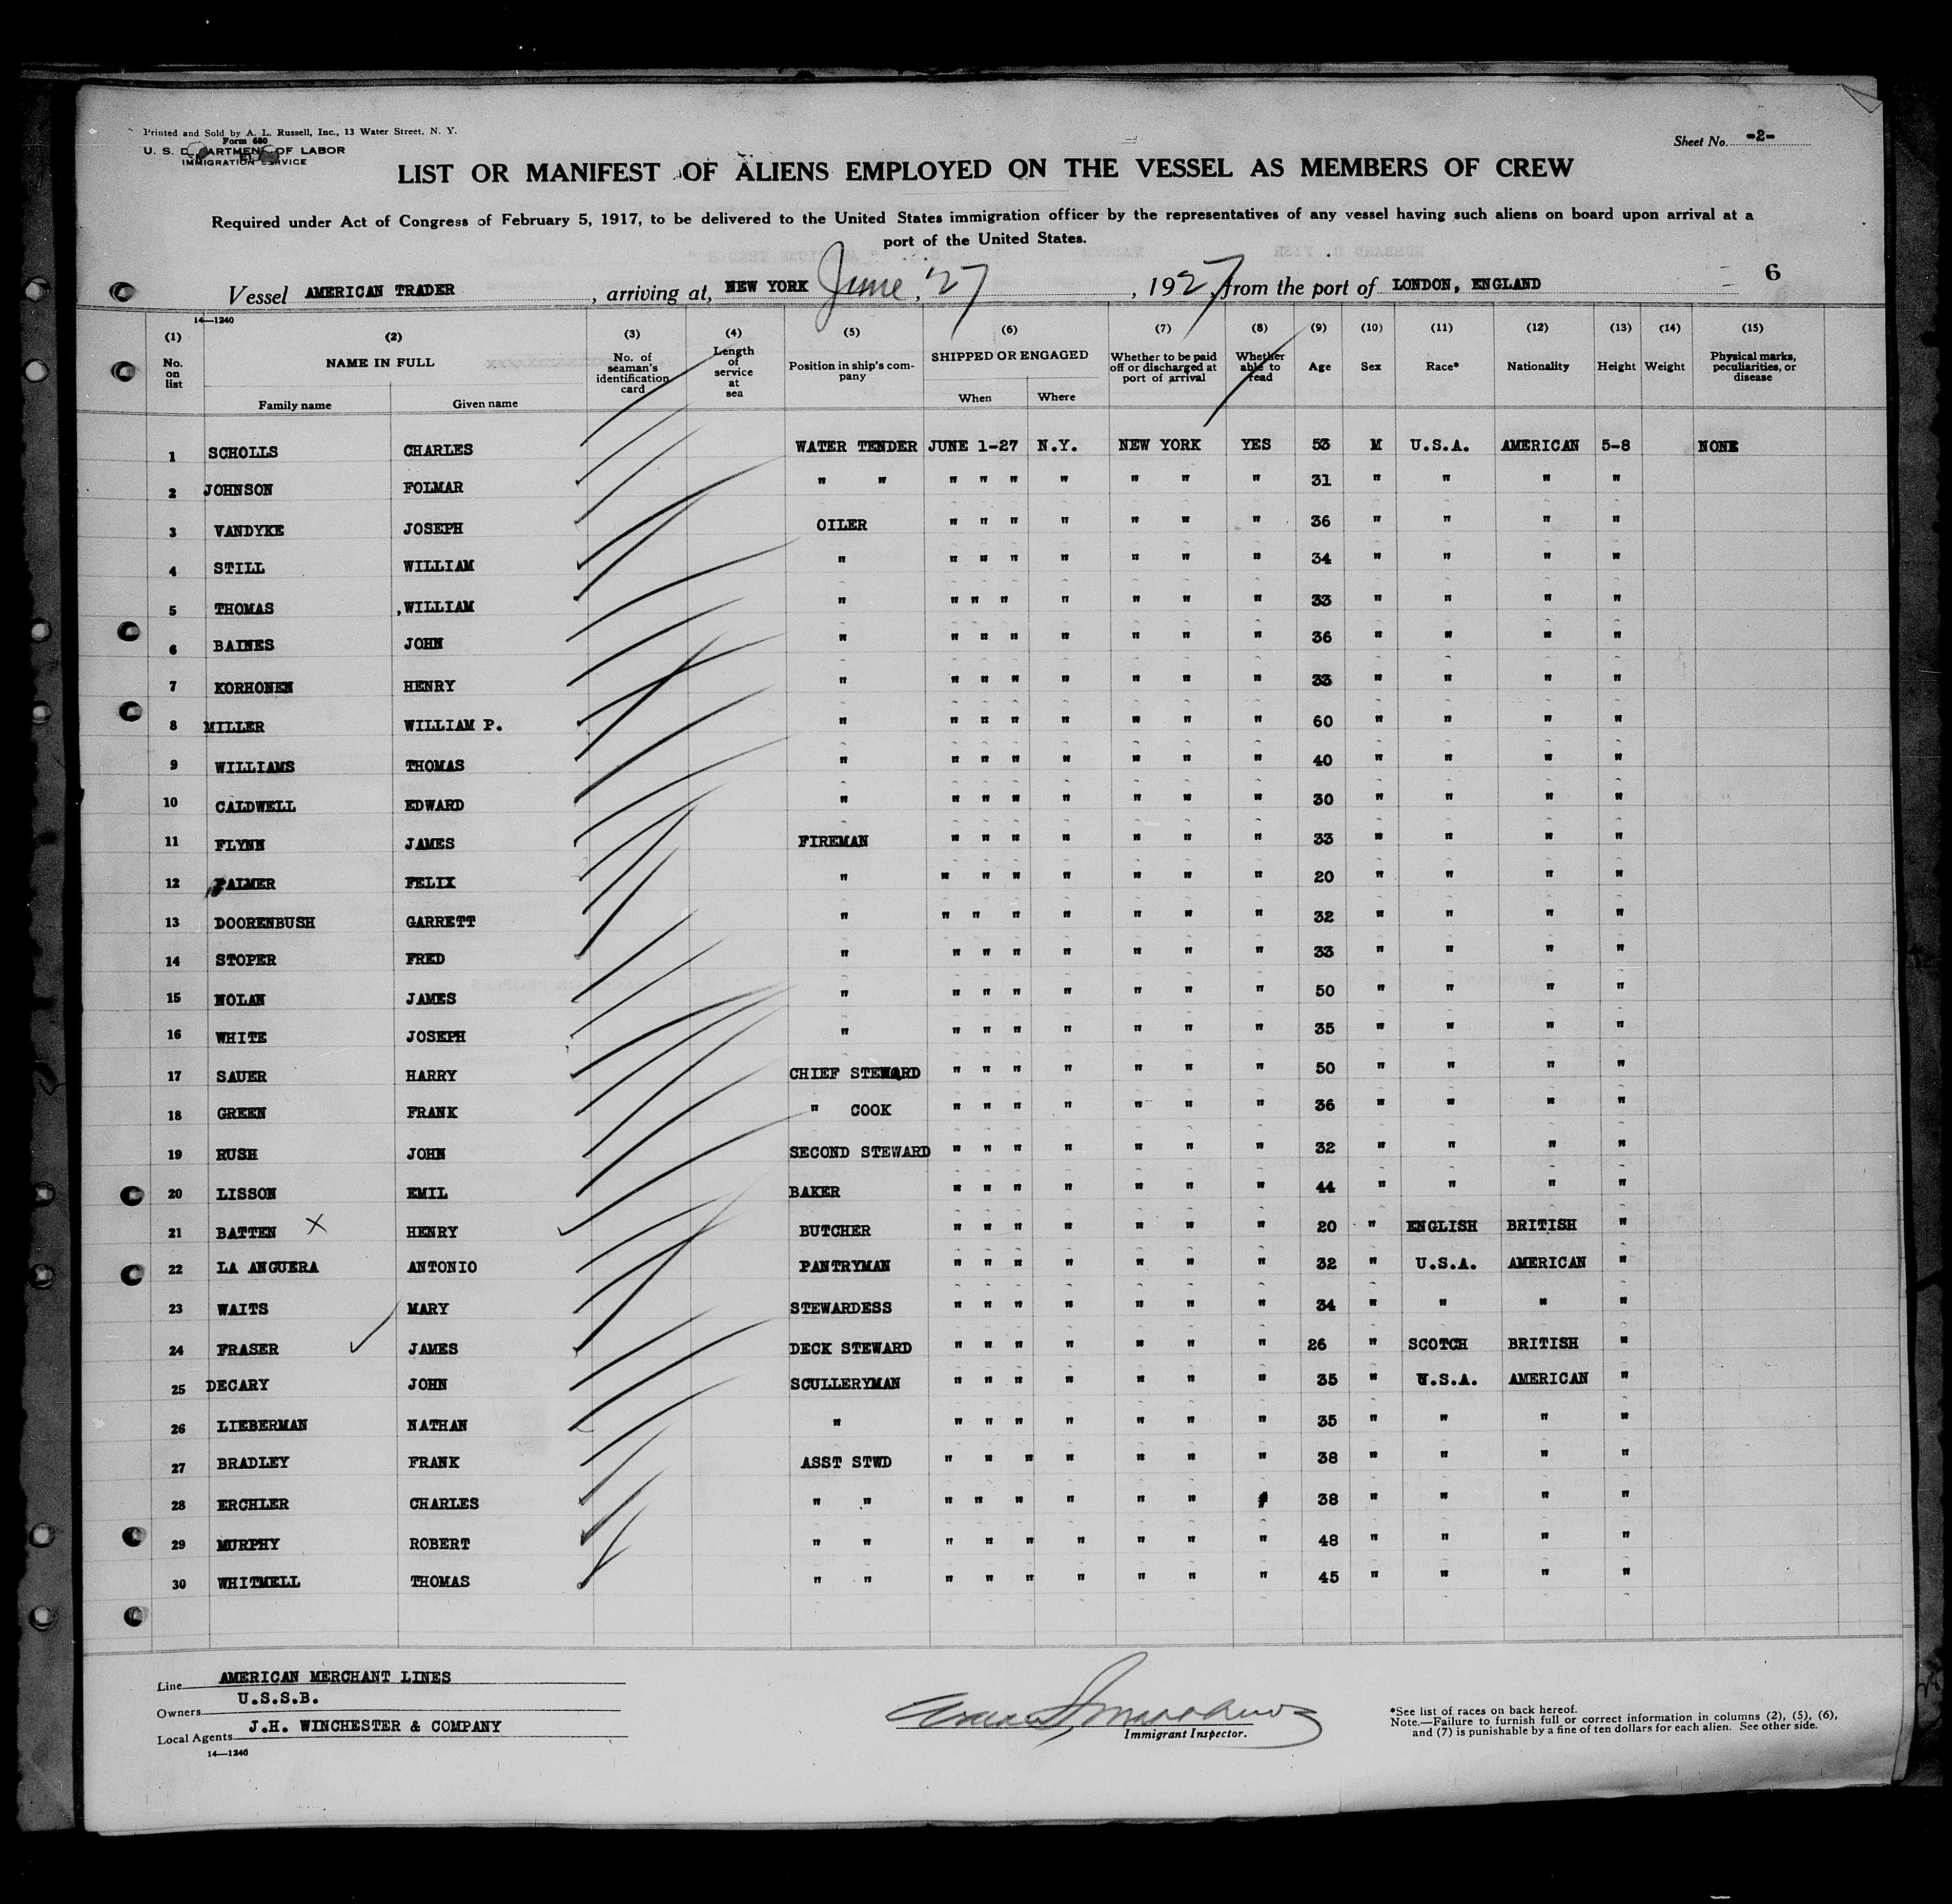 Printed and Sold by A. L. Russell, Inc., 13 Water Street, N. Y.
Form 680
U. S. DEPARTMENT OF LABOR
IMMIGRATION SERVICE
Sheet No. -2-
LIST OR MANIFEST OF ALIENS EMPLOYED ON THE VESSEL AS MEMBERS OF CREW
Required under Act of Congress of February 5, 1917, to be delivered to the United States immigration officer by the representatives of any vessel having such aliens on board upon arrival at a
port of the United States.
6
Vessel AMERICAN TRADER, arriving at, NEW YORK June, '27, 1927, from the port of LONDON, ENGLAND
14—1240
(1) (2) (3) (4) (5) (6) (7) (8) (9) (10) (11) (12) (13) (14) (15)
No. on list NAME IN FULL Family name Given name No. of seaman's identification card Length of service at sea Position in ship's company SHIPPED OR ENGAGED When Where Whether to be paid off or discharged at port of arrival Whether able to read Age Sex Race* Nationality Height Weight Physical marks, peculiarities, or disease
1 SCHOLLS CHARLES WATER TENDER JUNE 1-27 N.Y. NEW YORK YES 53 M U.S.A. AMERICAN 5-8 NONE
2 JOHNSON FOLMAR " " " " " " " " " 31 " " " "
3 VANDYKE JOSEPH OILER " " " " " " " 36 " " " "
4 STILL WILLIAM " " " " " " " " 34 " " " "
5 THOMAS WILLIAM " " " " " " " " 33 " " " "
6 BAINES JOHN " " " " " " " " 36 " " " "
7 KORHONEN HENRY " " " " " " " " 33 " " " "
8 MILLER WILLIAM P. " " " " " " " " 60 " " " "
9 WILLIAMS THOMAS " " " " " " " " 40 " " " "
10 CALDWELL EDWARD " " " " " " " " 30 " " " "
11 FLYNN JAMES FIREMAN " " " " " " " 33 " " " "
12 PALMER FELIX " " " " " " " " 20 " " " "
13 DOORENBUSH GARRETT " " " " " " " " 32 " " " "
14 STOPER FRED " " " " " " " " 33 " " " "
15 NOLAN JAMES " " " " " " " " 50 " " " "
16 WHITE JOSEPH " " " " " " " " 35 " " " "
17 SAUER HARRY CHIEF STEWARD " " " " " " " 50 " " " "
18 GREEN FRANK " COOK " " " " " " " 36 " " " "
19 RUSH JOHN SECOND STEWARD " " " " " " " 32 " " " "
20 LISSON EMIL BAKER " " " " " " " 44 " " " "
21 BATTEN X HENRY BUTCHER " " " " " " " 20 " ENGLISH BRITISH "
22 LA ANGUERA ANTONIO PANTRYMAN " " " " " " " 32 " U.S.A. AMERICAN "
23 WAITS MARY STEWARDESS " " " " " " " 34 " " " "
24 FRASER JAMES DECK STEWARD " " " " " " " 26 " SCOTCH BRITISH "
25 DECARY JOHN SCULLERYMAN " " " " " " " 35 " U.S.A. AMERICAN "
26 LIEBERMAN NATHAN " " " " " " " " 35 " " " "
27 BRADLEY FRANK ASST STWD " " " " " " " 38 " " " "
28 ERCHLER CHARLES " " " " " " " " " 38 " " " "
29 MURPHY ROBERT " " " " " " " " " 48 " " " "
30 WHITMELL THOMAS " " " " " " " " " 45 " " " "
Line AMERICAN MERCHANT LINES
Owners U.S.S.B.
Local Agents J.H. WINCHESTER & COMPANY
14—1240
Immigrant Inspector.
*See list of races on back hereof.
Note.—Failure to furnish full or correct information in columns (2), (5), (6),
and (7) is punishable by a fine of ten dollars for each alien. See other side.